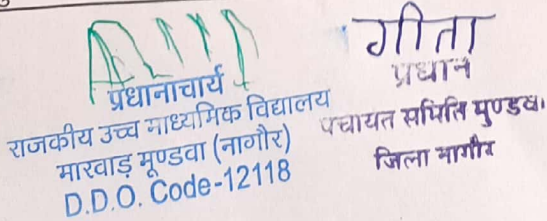 प्रधानाचार्य
राजकीय उच्च माध्यमिक विद्यालय
मारवाड़ मूण्डवा (नागौर)
D.D.O. Code-12118
गीता
प्रधान
पंचायत समिति मुण्डवा
जिला नागौर